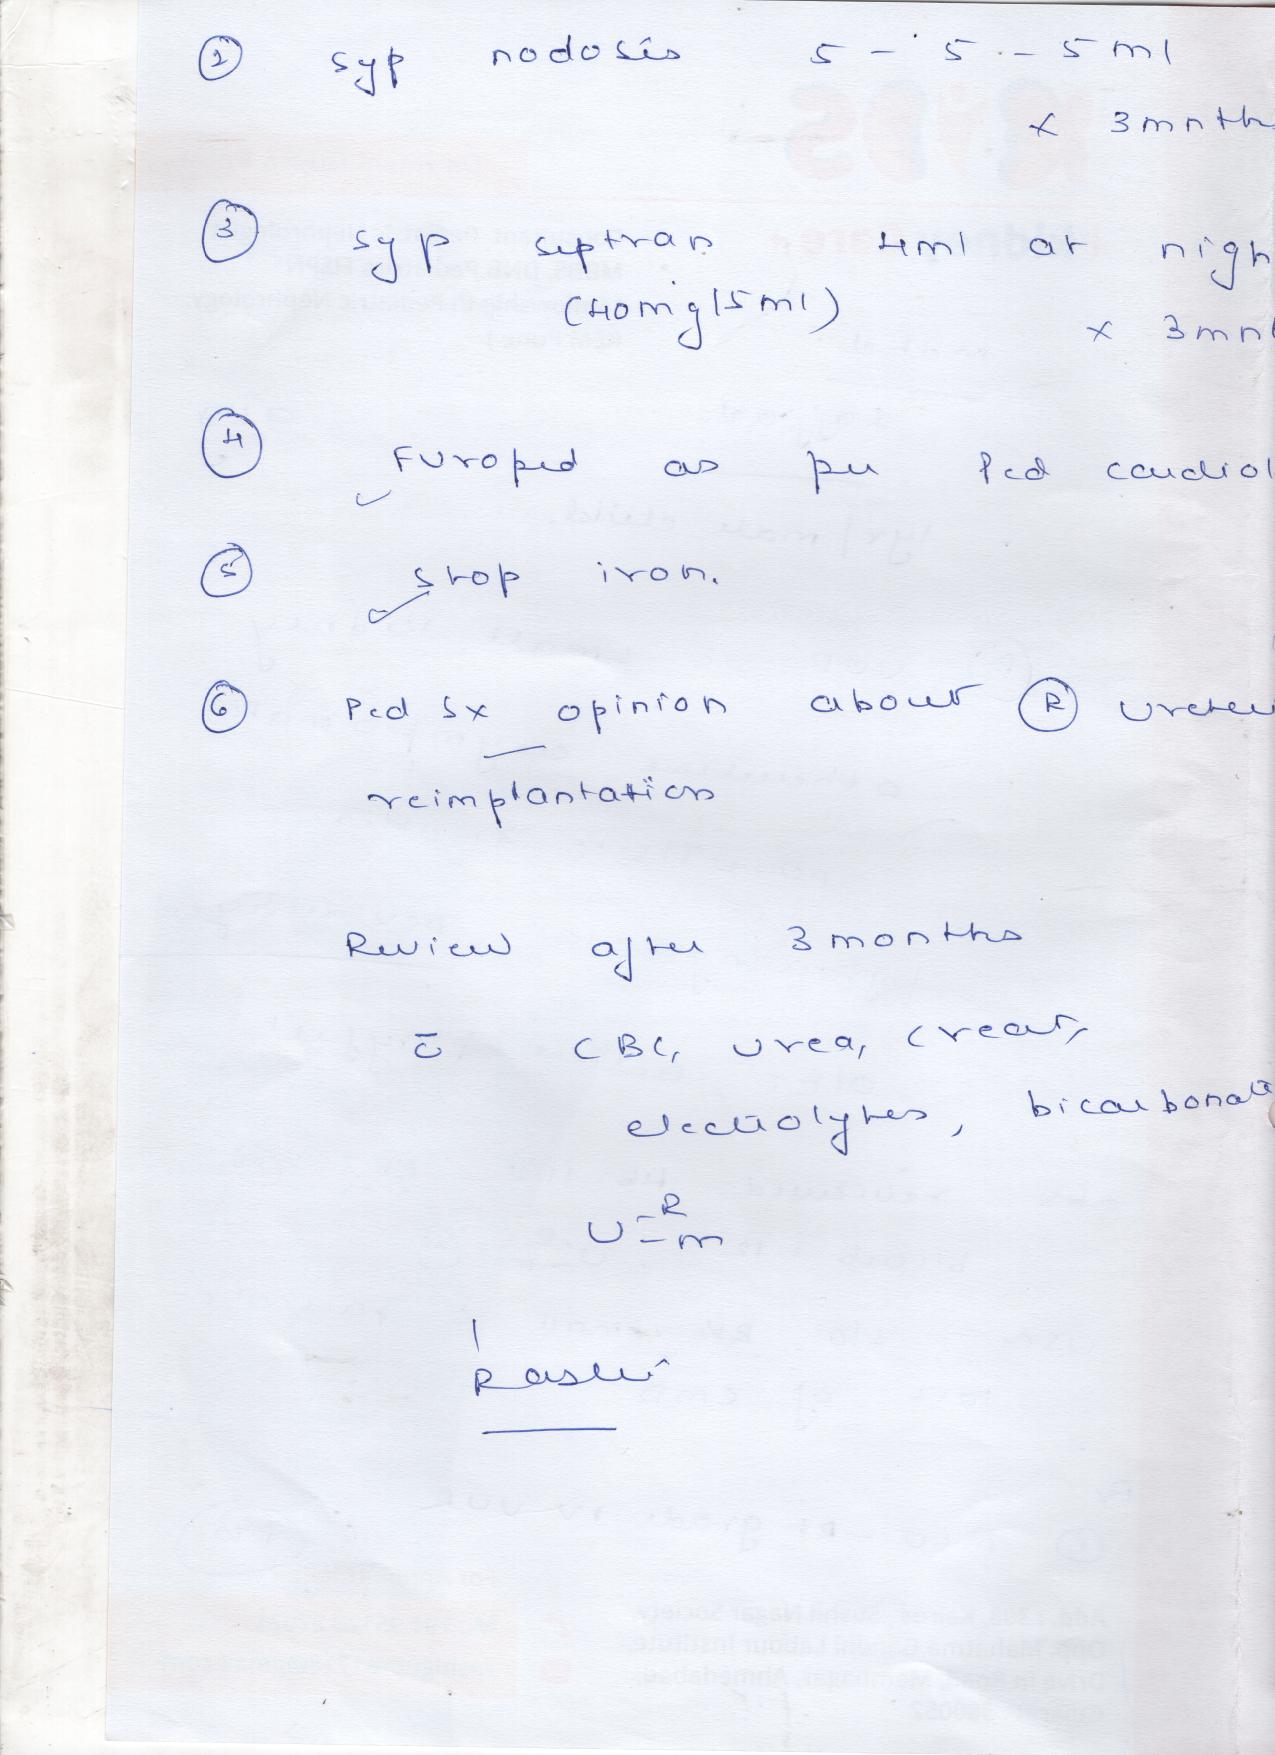 2 Syp nodosis 5 - 5 - 5 ml
x 3 mnth
3 Syp septran 4ml at nigh
(40mg/5ml)
x 3 mnt
4 Furoped as per Ped cardiol
5 Stop iron.
6 Ped Sx opinion about R ureter
reimplantation
Review after 3 months
c̄ CBC, urea, creat,
electrolytes, bicarbonate
U R
m